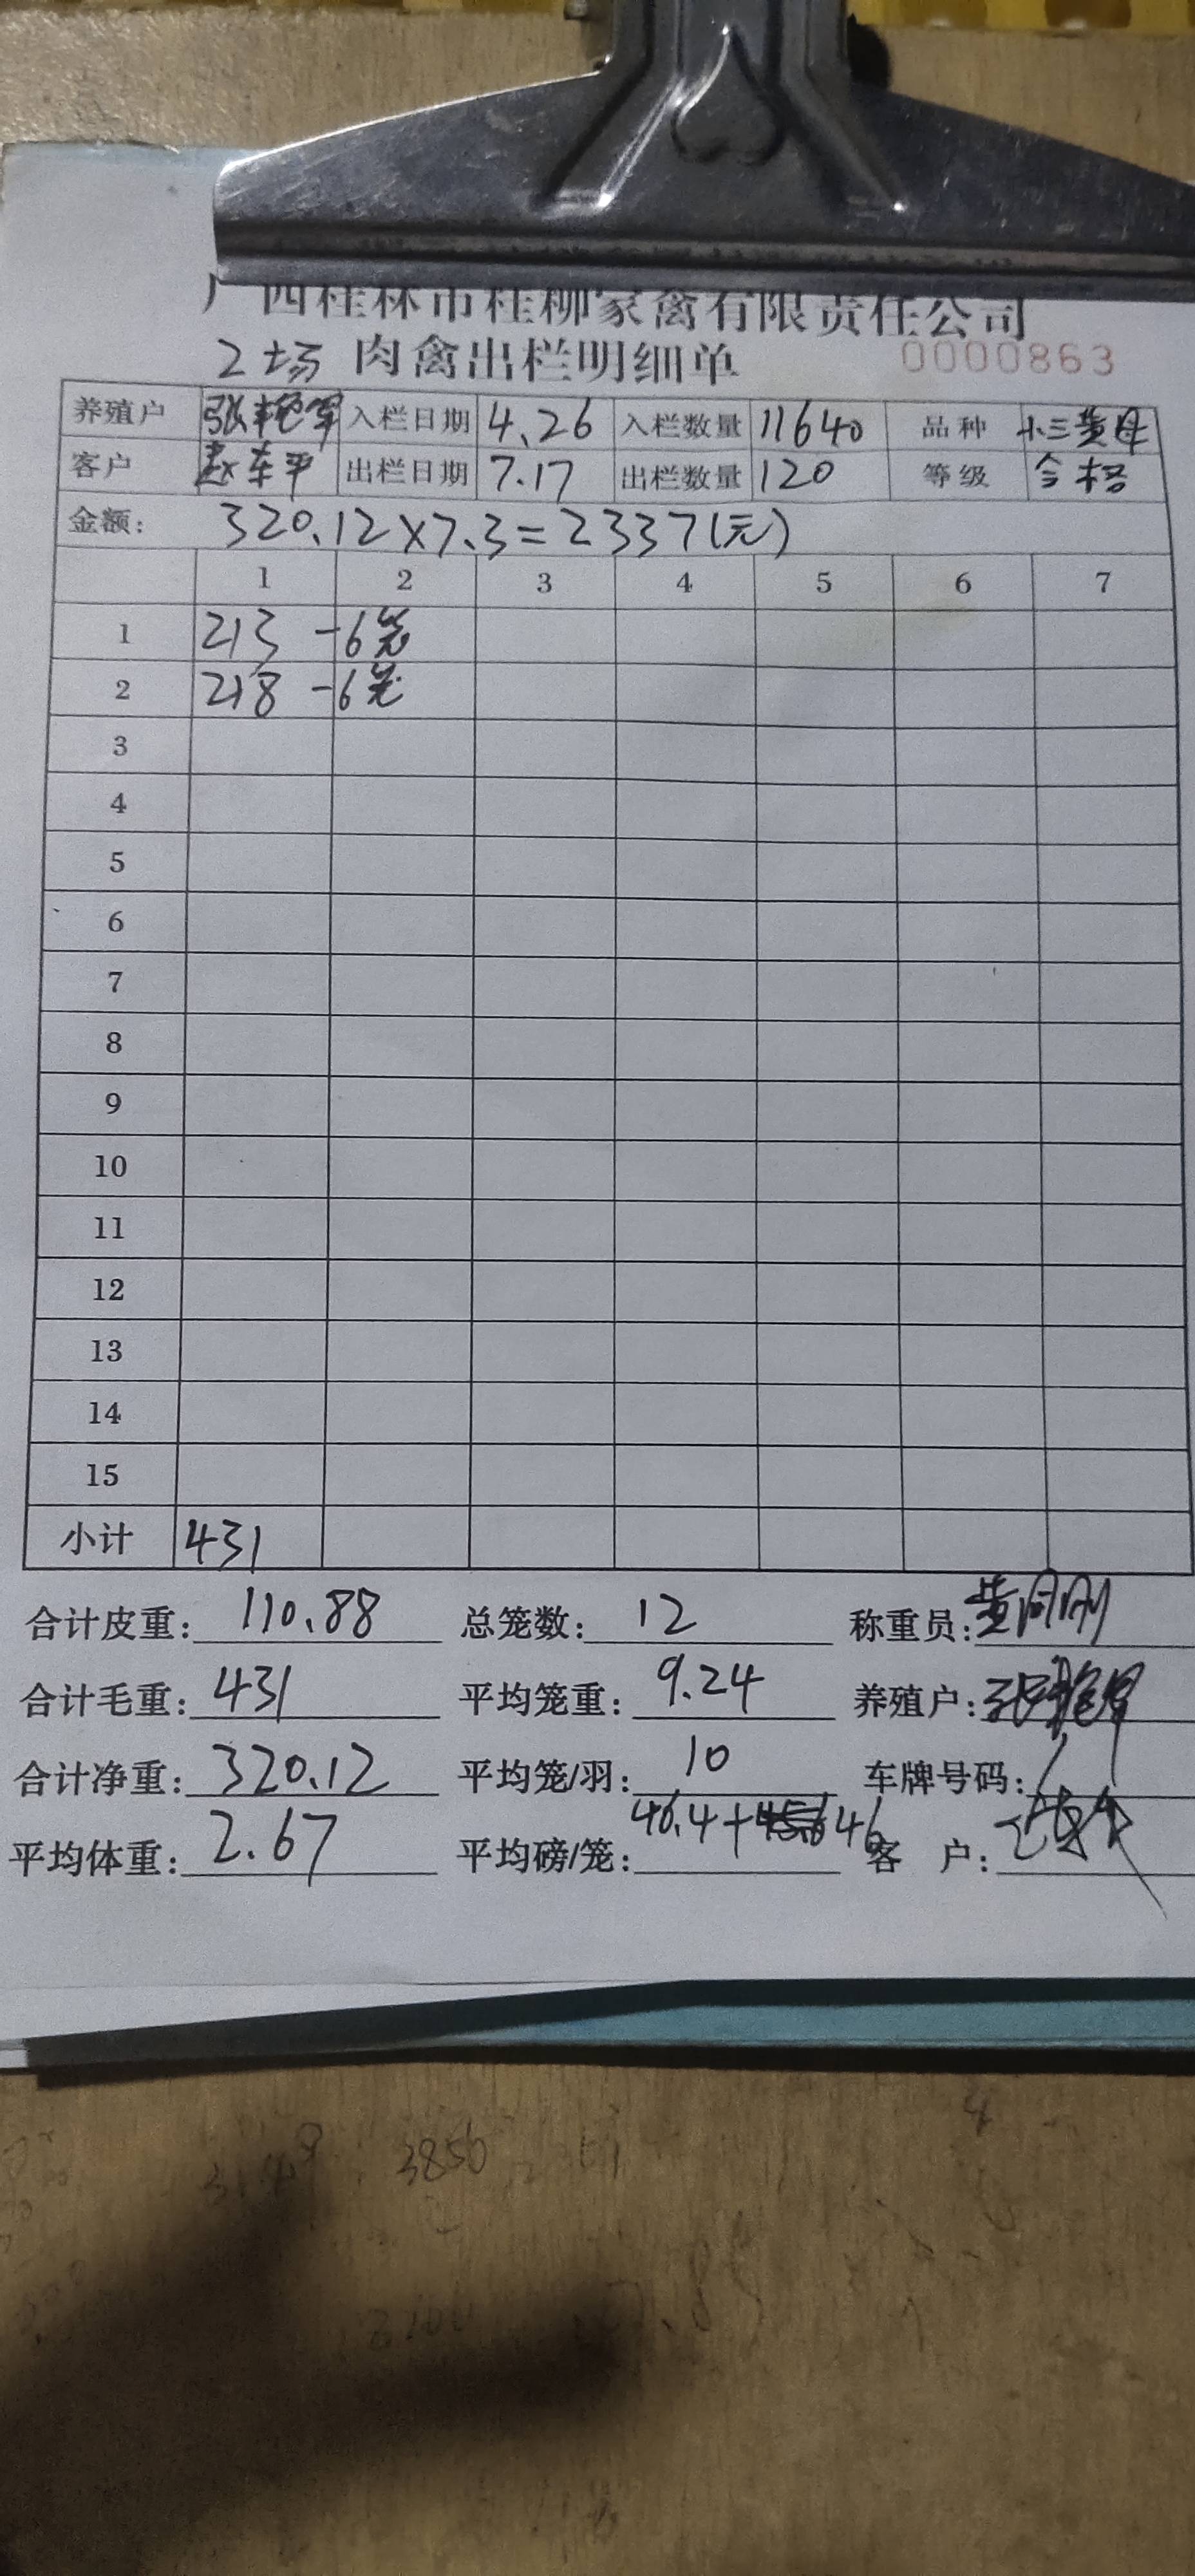 广西桂林市桂柳家禽有限责任公司
2场 肉禽出栏明细单 0000863
养殖户 张艳军 入栏日期 4.26 入栏数量 11640 品种 小三黄母
客户 赵车平 出栏日期 7.17 出栏数量 120 等级 合格
金额: 320.12×7.3=2337(元)
1 2 3 4 5 6 7
1 213 -6笼
2 218 -6笼
3
4
5
6
7
8
9
10
11
12
13
14
15
小计 431
合计皮重: 110.88 总笼数: 12 称重员:
合计毛重: 431 平均笼重: 9.24 养殖户:
合计净重: 320.12 平均笼/羽: 10 车牌号码:
平均体重: 2.67 平均磅/笼: 46.4+46 客 户:
3850